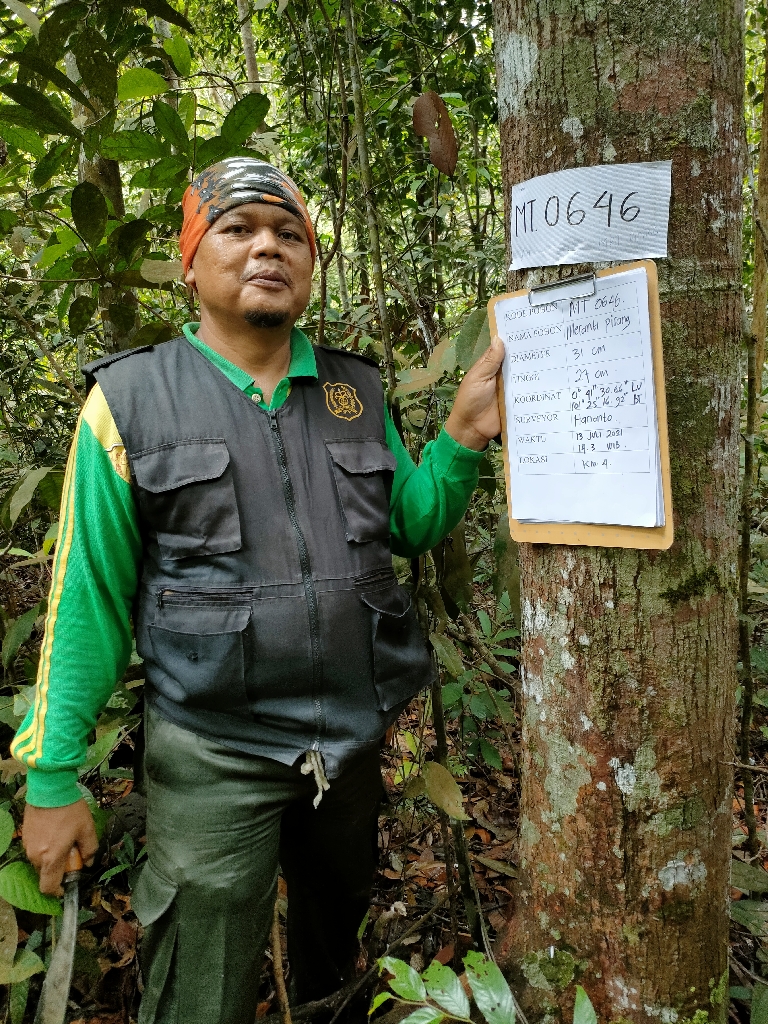 MT. 0646
KODE POHON MT 0646.
NAMA POHON Meranti pirang
DIAMETER 31 cm
TINGGI 27 cm
KOORDINAT 0° 41" 30.66" LU
101° 25" 16.92" BT
SURVEYOR Hanonto
WAKTU 13 JULI 2021
14.3 WIB
LOKASI Km 4.